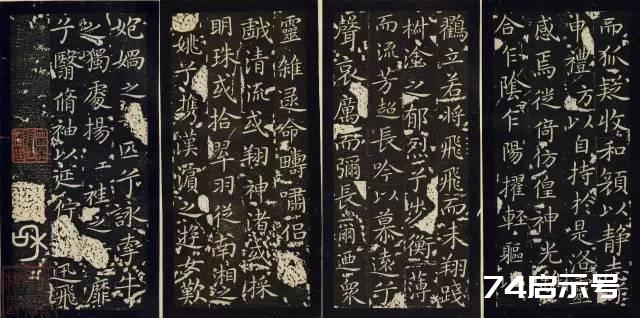 而狐疑收和顏以静志
申禮方以自持於是洛
感焉徙倚仿偟神光
合乍陰乍陽擢輕軀
鸖立若將飛飛而未翔踐
椒塗之郁烈兮步衡薄
而流芳超長吟以慕遠兮
聲哀厲而彌長爾迺衆
靈雜遝命疇嘯侣
戲清流或翔神渚或採
明珠或拾翠羽從南湘之
姚兮攜漢濱之遊女歎
媧之匹兮詠牽牛
之獨處揚袿之靡
兮翳脩袖以延佇迅飛
74启示号